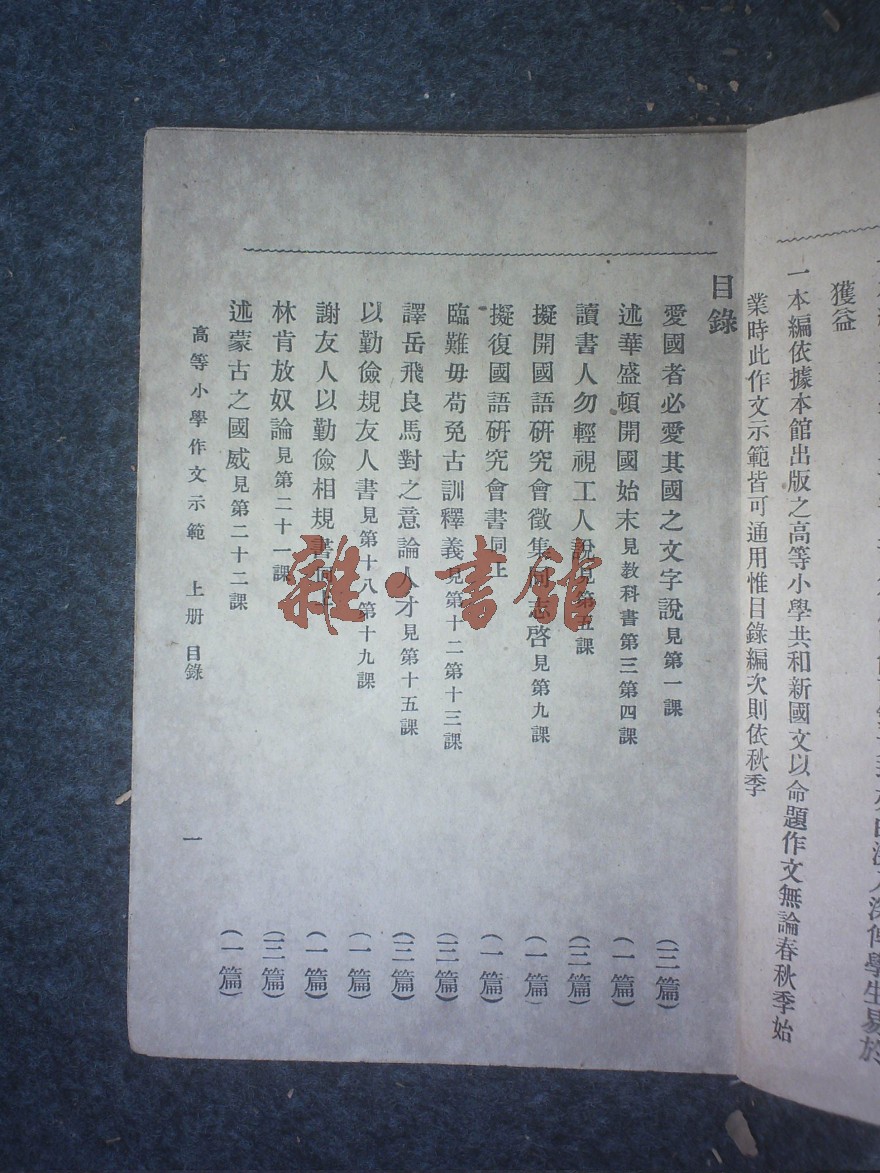 獲益
一本編依據本館出版之高等小學共和新國文以命題作文無論春秋季始
業時此作文示範皆可通用惟目錄編次則依秋季
目錄
愛國者必愛其國之文字說見第一課 (三篇)
述華盛頓開國始末見教科書第三第四課 (一篇)
讀書人勿輕視工人說見第五課 (三篇)
擬開國語研究會徵集同志啓見第九課 (一篇)
擬復國語研究會書同上 (一篇)
臨難毋苟免古訓釋義見第十二第十三課 (三篇)
譯岳飛良馬對之意論人才見第十五課 (三篇)
以勤儉規友人書見第十八第十九課 (一篇)
謝友人以勤儉相規書同上 (一篇)
林肯放奴論見第二十一課 (三篇)
述蒙古之國威見第二十二課 (一篇)
高等小學作文示範 上册 目錄
一
雜·書館